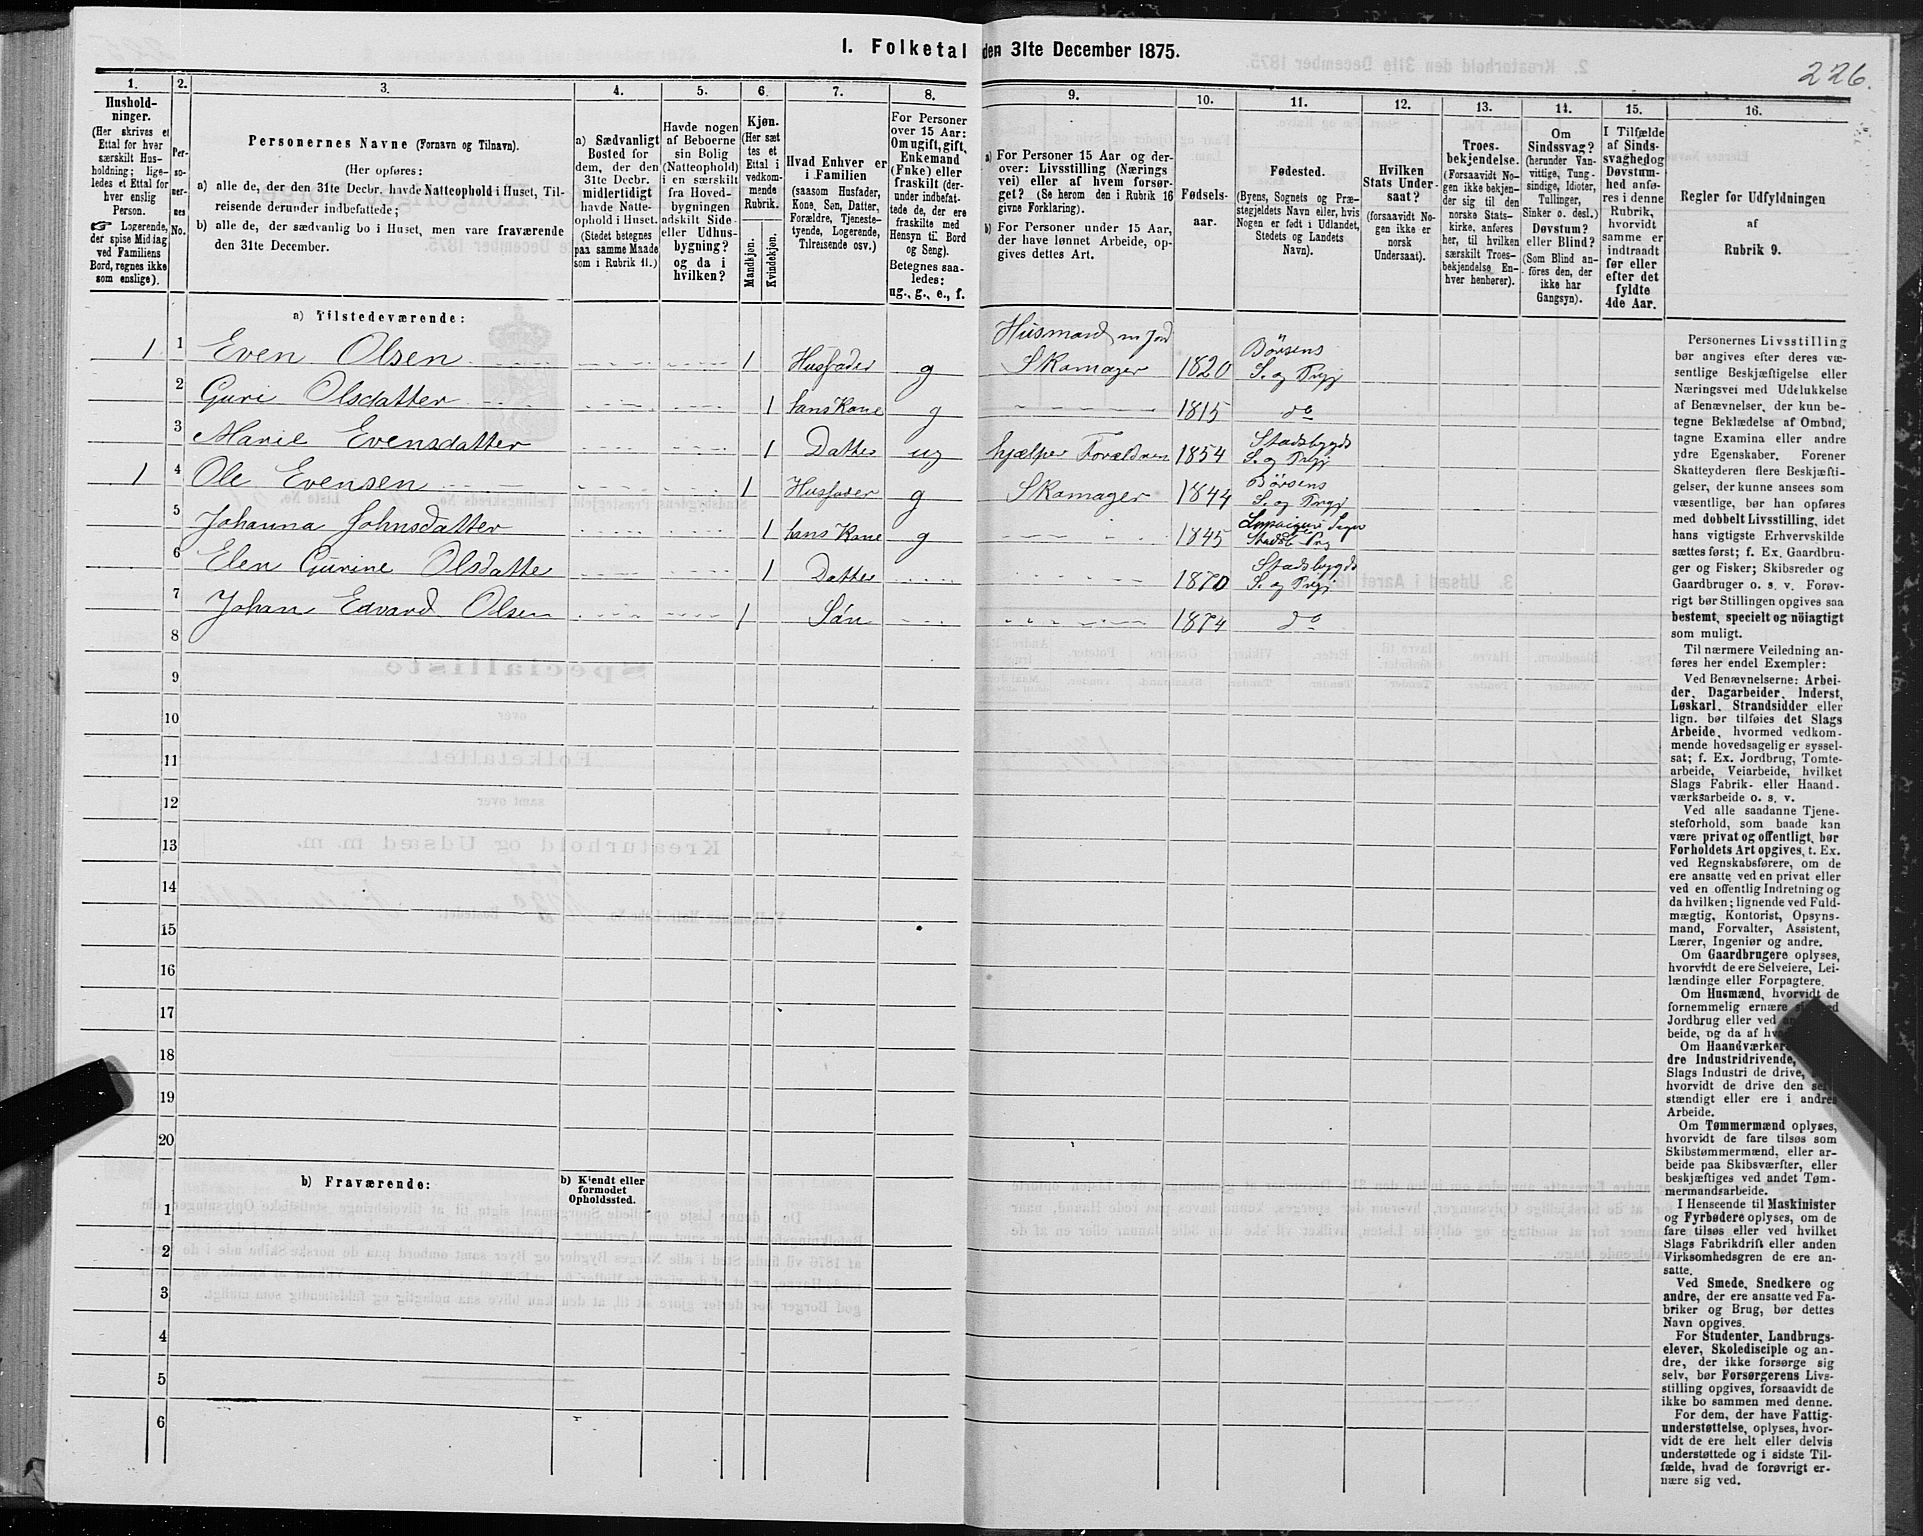 I. Folketal den 31te December 1875.
226.
1. 2. 3. 4. 5. 6. 7. 8. 9. 10. 11. 12. 13. 14. 15. 16.
Hushold-
ninger.
(Her skrives et
Ettal for hver
særskilt Hus-
holdning; lige-
ledes et Ettal for
hver enslig
Person.
☞ Logerende,
der spise Middag
ved Familiens
Bord, regnes ikke
som enslige).
Per-
so-
ner-
nes
No.
Personernes Navne (Fornavn og Tilnavn).
(Her opføres:
a) alle de, der den 31te Decbr. havde Natteophold i Huset, Til-
reisende derunder indbefattede;
b) alle de, der sædvanlig bo i Huset, men vare fraværende
den 31te December.
a) Sædvanligt
Bosted for
dem, der den
31te Decbr.
midlertidigt
havde Natte-
ophold i Huset.
(Stedet betegnes
paa samme Maade
som i Rubrik 11.)
Havde nogen
af Beboerne
sin Bolig
(Natteophold)
i en særskilt
fra Hoved-
bygningen
adskilt Side-
eller Udhus-
bygning?
og da i
hvilken?
Kjøn.
(Her sæt-
tes et
Ettal i
vedkom-
mende
Rubrik.
Mandkjøn.
Kvindekjøn.
Hvad Enhver er
i Familien
(saasom Husfader,
Kone, Søn, Datter,
Forældre, Tjeneste-
tyende, Logerende,
Tilreisende osv.)
For Personer
over 15 Aar:
Om ugift, gift,
Enkemand
(Enke) eller
fraskilt (der-
under indbefat-
tede de, der ere
fraskilte med
Hensyn til Bord
og Seng).
Betegnes saa-
ledes:
ug., g., e., f.
a) For Personer 15 Aar og der-
over: Livsstilling (Nærings
vei) eller af hvem forsør-
get? (Se herom den i Rubrik 16
givne Forklaring).
b) For Personer under 15 Aar,
der have lønnet Arbeide, op-
gives dettes Art.
Fødsels-
aar.
Fødested.
(Byens, Sognets og Præ-
stegjeldets Navn eller, hvis
Nogen er født i Udlandet,
Stedets og Landets
Navn).
Hvilken
Stats Under-
saat?
(forsaavidt No-
gen ikke er
norsk
Undersaat).
Troes-
bekjendelse.
(Forsaavidt No-
gen ikke bekjen-
der sig til den
norske Stats-
kirke, anføres
her, til hvilken
særskilt Troes-
bekjendelse En-
hver henhører).
Om
Sindssvag?
(herunder Van-
vittige, Tung-
sindige, Idioter,
Tullinger,
Sinker o. desl.)
Døvstum?
eller Blind?
(Som Blind an-
føres den, der
ikke har
Gangsyn).
I Tilfælde
af Sinds-
svaghed og
Døvstum-
hed anfø-
res i denne
Rubrik,
hvorvidt
samme er
indtraadt
før eller
efter det
fyldte
4de Aar.
Regler for Udfyldningen
af
Rubrik 9.
a) Tilstedeværende:
1 1 Even Olsen 1 Husfader g Husmand m Jord Skomager 1820 Børsens S. og Prgj
2 Guri Olsdatter 1 hans Kone g 1815 do
3 Marie Evensdatter 1 Datter ug hjælper Forældrene 1854 Stadsbygds S. og Prgj
1 4 Ole Evensen 1 Husfader g Skomager 1844 Børsens S. og Prgj
5 Johanna Johnsdatter 1 hans Kone g 1845 Stadsb Prg
6 Elen Gurine Olsdatter 1 Datter 1870 Stadsbygds S. og Prgj
7 Johan Edvard Olsen 1 Søn 1874 do
8
9
10
11
12
13
14
15
16
17
18
19
20
b) Fraværende:
b) Kjendt eller
formodet
Opholdssted.
1
2
3
4
5
6
Personernes Livsstilling
bør angives efter deres væ-
sentlige Beskjæftigelse eller
Næringsvei med Udelukkelse
af Benævnelser, der kun be-
tegne Beklædelse af Ombud,
tagne Examina eller andre
ydre Egenskaber. Forener
Skatteyderen flere Beskjæfti-
gelser, der kunne ansees som
væsentlige, bør han opføres
med dobbelt Livsstilling, idet
hans vigtigste Erhvervskilde
sættes først; f. Ex. Gaardbru-
ger og Fisker; Skibsreder og
Gaardbruger o. s. v. Forøv-
rigt bør Stillingen opgives saa
bestemt, specielt og nöiagtigt
som muligt.
Til nærmere Veiledning an-
føres her endel Exempler:
Ved Benævnelserne: Arbei-
der, Dagarbeider, Inderst,
Løskarl, Strandsidder eller
lign. bør tilføies det Slags
Arbeide, hvormed vedkom-
mende hovedsagelig er syssel-
sat; f. Ex. Jordbrug, Tomte-
arbeide, Veiarbeide, hvilket
Slags Fabrik- eller Haand-
værksarbeide o. s. v.
Ved alle saadanne Tjene-
steforhold, som baade kan
være privat og offentligt, bør
Forholdets Art opgives, t. Ex.
ved Regnskabsførere, om de
ere ansatte ved en privat eller
ved en offentlig Indretning og
da hvilken; lignende ved Fuld-
mægtig, Kontorist, Opsyns-
mand, Forvalter, Assistent,
Lærer, Ingeniør og andre.
Om Gaardbrugere oplyses,
hvorvidt de ere Selveiere, Lei-
lændinge eller Forpagtere.
Om Husmænd, hvorvidt de
fornemmelig ernære
Jordbrug eller ved
beide, og da af
Om Haandværkere
dre Industridrivende,
Slags Industri de drive,
hvorvidt de drive den
stændigt eller ere i andres
Arbeide.
Om Tømmermænd oplyses,
hvorvidt de fare tilsøs som
Skibstømmermænd, eller ar-
beide paa Skibsværfter, eller
beskjæftiges ved andet Tøm-
mermandsarbeide.
I Henseende til Maskinister
og Fyrbødere oplyses, om de
fare tilsøs eller ved hvilket
Slags Fabrikdrift eller anden
Virksomhedsgren de ere an-
satte.
Ved Smede, Snedkere og
andre, der ere ansatte ved Fa-
briker og Brug, bør dettes
Navn opgives.
For Studenter, Landbrugs-
elever, Skoledisciple og an-
dre, der ikke forsørge sig
selv, bør Forsørgerens Livs-
stilling opgives, forsaavidt de
ikke bo sammen med denne.
For dem, der have Fattig-
understøttelse, oplyses, hvor-
vidt de ere helt eller delvis
understøttede og i sidste Til-
fælde, hvad de forøvrigt er-
nære sig ved.